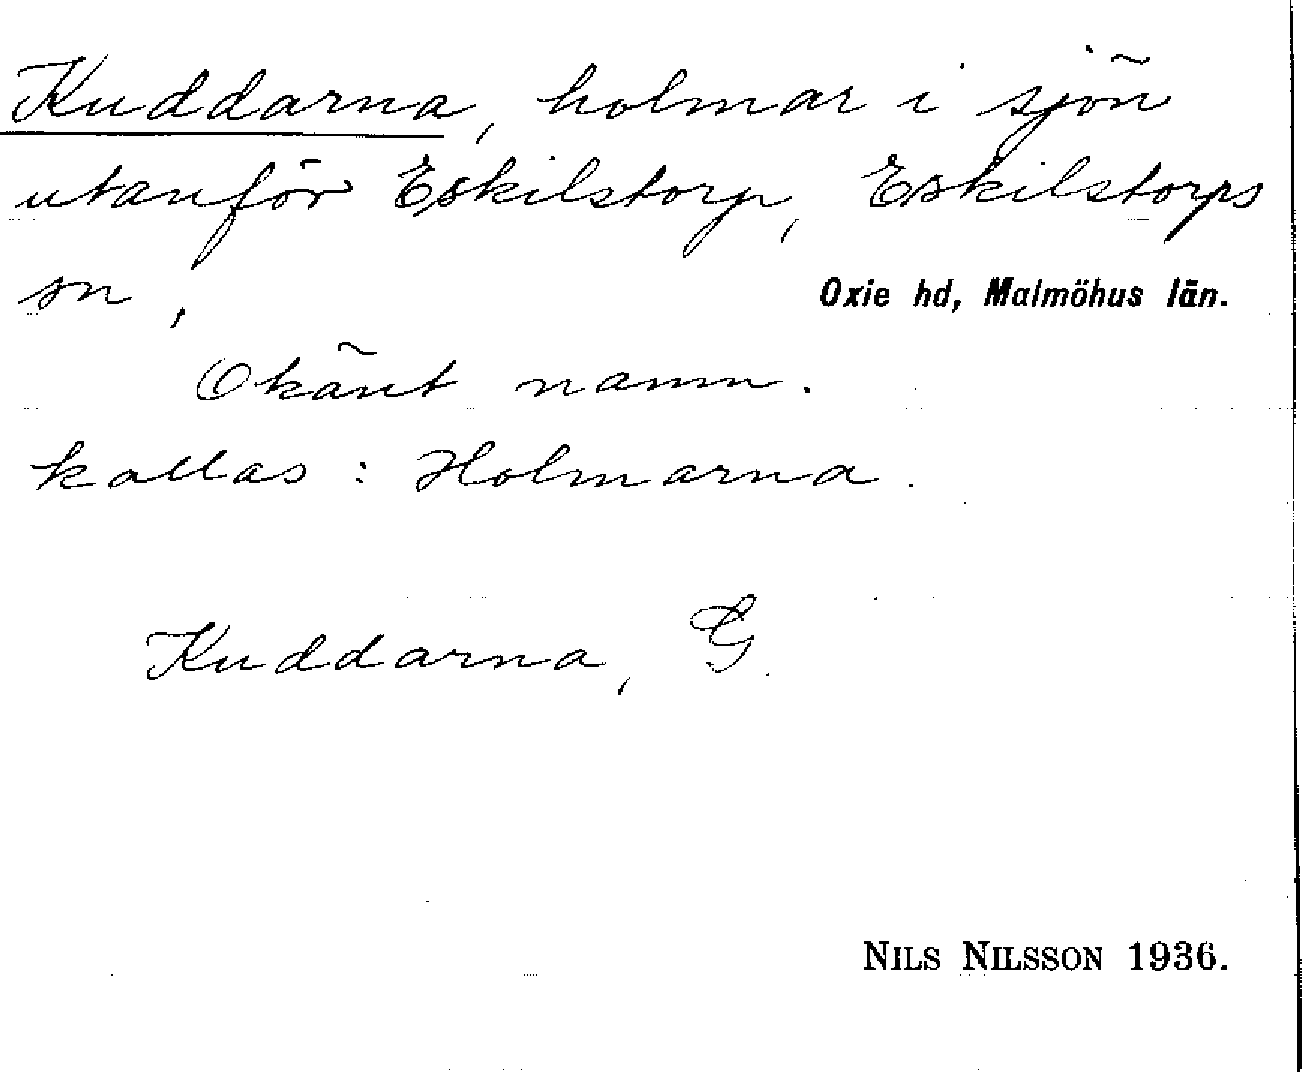 Kuddarna, holmar i sjön
utanför Eskilstorp, Eskilstorps
sn, Oxie hd, Malmöhus län.
Okänt namn.
kallas: Holmarna.
Kuddarna, G.
NILS NILSSON 1936.